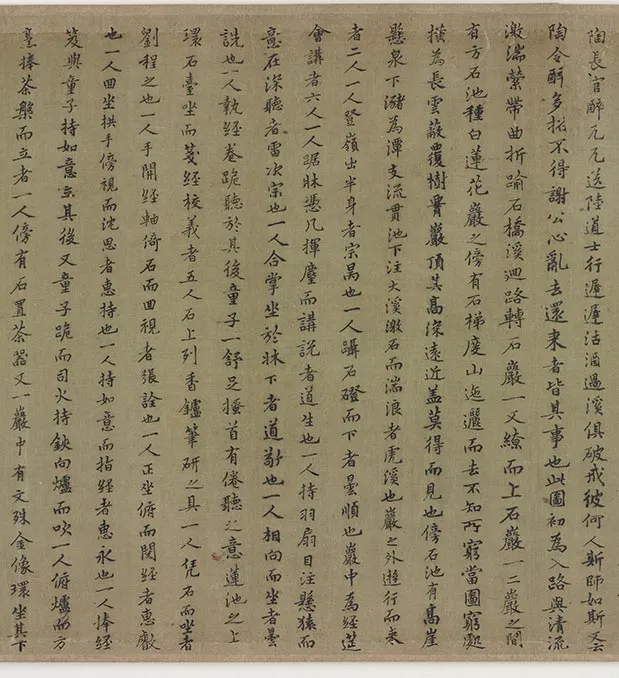 陶長官醉兀兀送陸道士行遲遲沽酒過溪俱破戒彼何人斯師如斯又云
陶令醉多招不得謝公心亂去還來者皆其事也此圖初為入路與清流
激湍縈帶曲折踰石橋溪迴路轉石巖一又繚而上石巖一二巖之間
有方石池種白蓮花巖之傍有石梯度山迤邐而去不知所窮當圖窮處
橫為長雲蔽覆樹巖頂其高深遠近蓋莫得而見也傍石池有高崖
懸泉下瀦為潭支流貫池下注大溪激石而湍浪者虎溪也巖之外遊行而來
者二人一人登嶺出半身者宗昺也一人躡石磴而下者曇順也巖中為經筵
會講者六人一人踞牀憑几揮麈而講說者道生也一人持羽扇目注懸猿而
意在深聽者雷次宗也一人合掌坐於牀下者道敬也一人相向而坐者曇
詵也一人執經卷跪聽於其後童子一舒足搔首有倦聽之意蓮池之上
環石臺坐而箋經校義者五人石上列香鑪筆研之具一人凭石而坐者
劉程之也一人手開經軸倚石而回視者張詮也一人正坐俯而閱經者惠叡
也一人回坐拱手傍視而沈思者惠持也一人持如意而指經者惠永也一人捧經
笈與童子持如意立其後又童子跪而司火持鋏向爐而吹一人俯爐而方
臺捧茶槃而立者一人傍有石置茶器又一巖中有文殊金像環坐其下